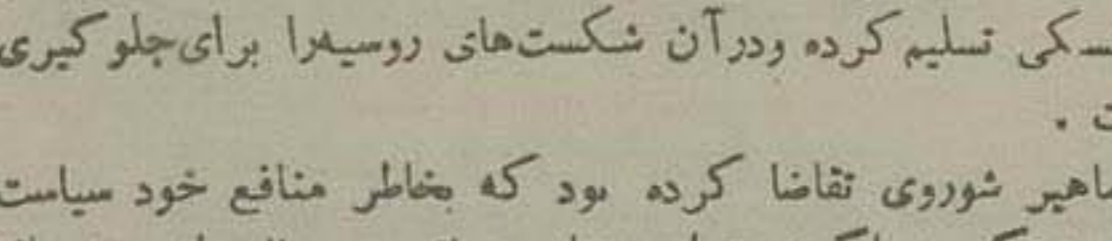 سکی تسلیم کرده ودرآن شکست‌های روسیه‌را برای جلوگیری
ت .
ماهیر شوروی تقاضا کرده بود که بخاطر منافع خود سیاست